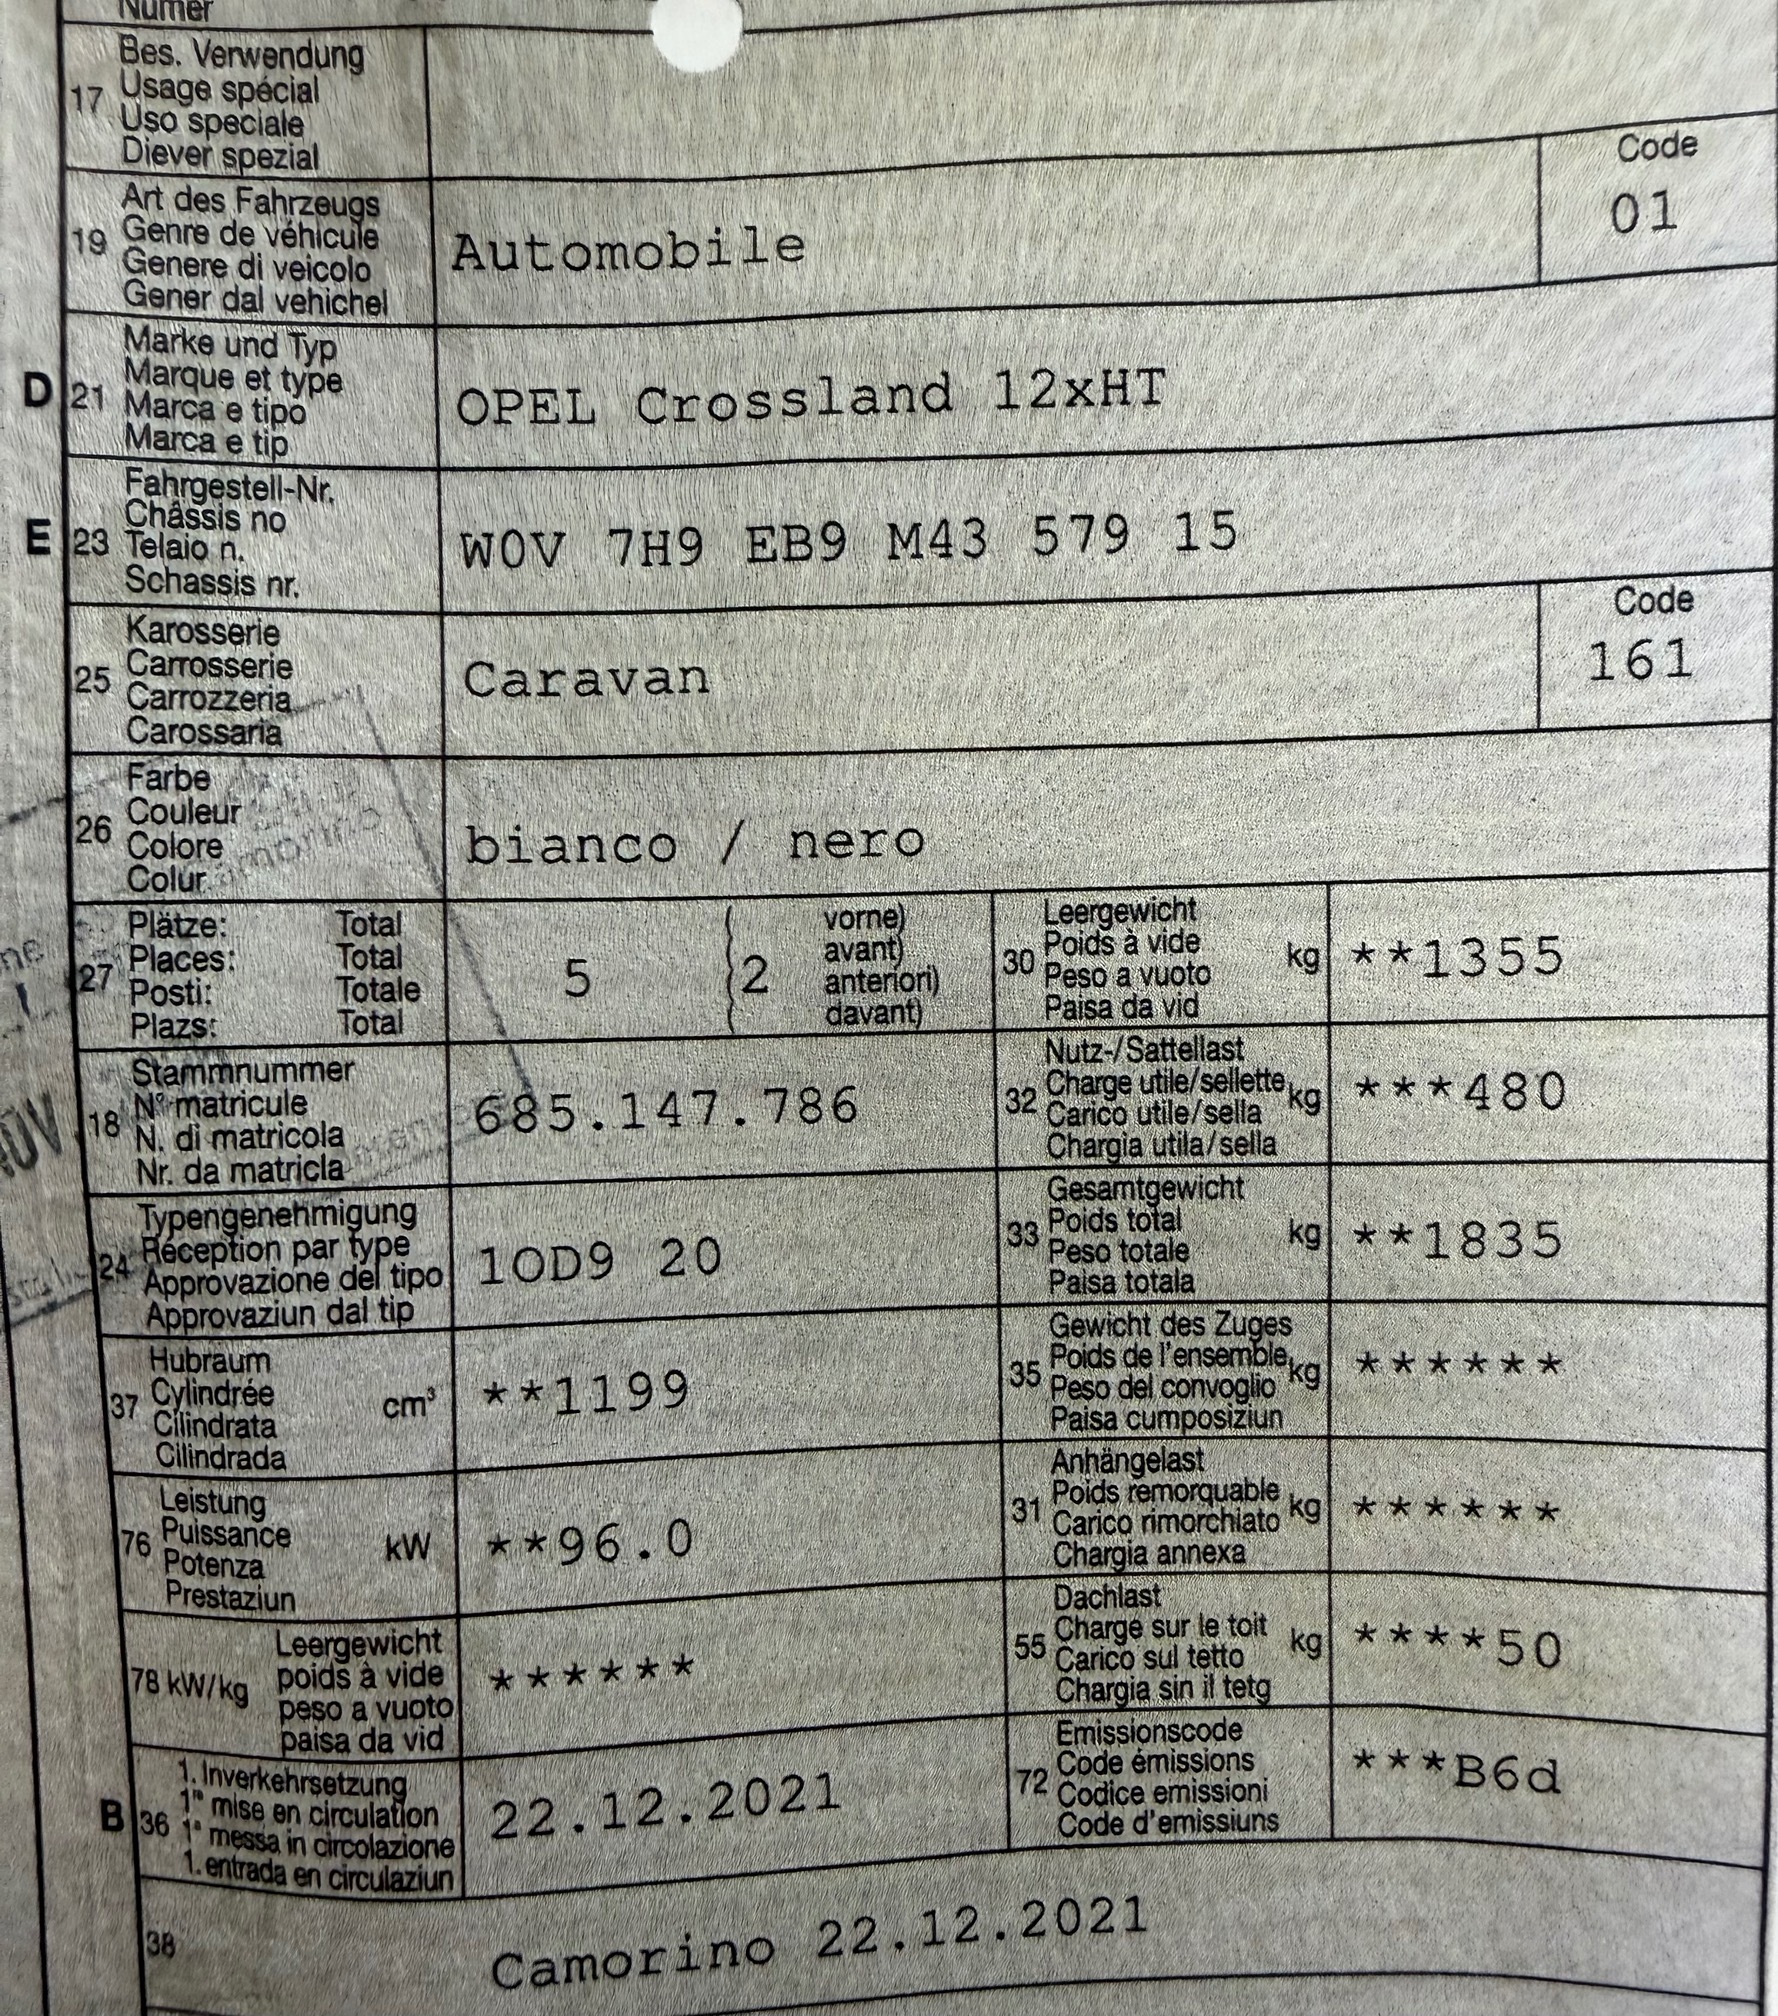 Numer
17 Bes. Verwendung
Usage spécial
Uso speciale
Diever spezial
19 Art des Fahrzeugs
Genre de véhicule
Genere di veicolo
Gener dal vehichel
Automobile
Code
01
D 21 Marke und Typ
Marque et type
Marca e tipo
Marca e tip
OPEL Crossland 12xHT
E 23 Fahrgestell-Nr.
Châssis no
Telaio n.
Schassis nr.
W0V 7H9 EB9 M43 579 15
25 Karosserie
Carrosserie
Carrozzeria
Carossaria
Caravan
Code
161
26 Farbe
Couleur
Colore
Colur
bianco / nero
27 Plätze: Total
Places: Total
Posti: Totale
Plazs: Total
5
2 vorne)
avant)
anteriori)
davant)
30 Leergewicht
Poids à vide
Peso a vuoto
Paisa da vid
kg **1355
18 Stammnummer
N° matricule
N. di matricola
Nr. da matricla
685.147.786
32 Nutz-/Sattellast
Charge utile/sellette
Carico utile/sella
Chargia utila/sella
kg ***480
24 Typengenehmigung
Réception par type
Approvazione del tipo
Approvaziun dal tip
1OD9 20
33 Gesamtgewicht
Poids total
Peso totale
Paisa totala
kg **1835
37 Hubraum
Cylindrée
Cilindrata
Cilindrada
cm³ **1199
35 Gewicht des Zuges
Poids de l'ensemble
Peso del convoglio
Paisa cumposiziun
kg ******
76 Leistung
Puissance
Potenza
Prestaziun
kW **96.0
31 Anhängelast
Poids remorquable
Carico rimorchiato
Chargia annexa
kg ******
78 kW/kg Leergewicht
poids à vide
peso a vuoto
paisa da vid
******
55 Dachlast
Charge sur le toit
Carico sul tetto
Chargia sin il tetg
kg ****50
B 36 1. Inverkehrsetzung
1re mise en circulation
1a messa in circolazione
1. entrada en circulaziun
22.12.2021
72 Emissionscode
Code émissions
Codice emissioni
Code d'emissiuns
***B6d
38
Camorino 22.12.2021